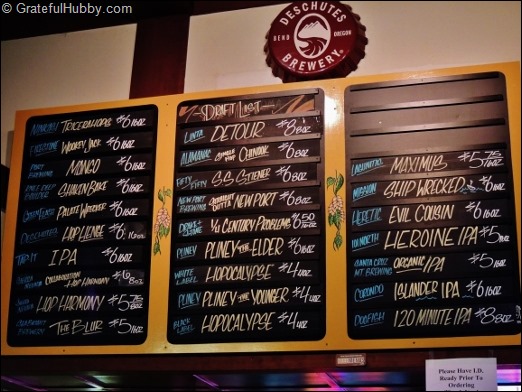 © GratefulHubby.com
DESCHUTES
BEND OREGON
BREWERY
DRAFT LIST
TRICERAHOPS $6 16oz
FIRESTONE WOOKEY JACK $6 16oz
PORT BREWING MONGO $6 16oz
KNEE DEEP SHAKEN BAKE $6 16oz
GREEN FLASH PALATE WRECKER $6 16oz
DESCHUTES HOP HENGE $6
TAP IT IPA $6 16oz
COLLABORATION HOP HARMONY $6 8oz
HOP HARMONY $5.75 8oz
BREWERY THE BLUR $5 16oz
UINTA DETOUR $8 8oz
ALMANAC SINGLE HOP CHINOOK $6 16oz
FIFTY FIFTY S.S. STIENER $6 16oz
NEWPORT BEACH STRAIGHT OUTTA NEWPORT $6 16oz
DRAKE'S 1/4 CENTURY PROBLEMS $6.50 16oz
PLINY PLINEY THE ELDER $6 16oz
WHITE LABEL HOPOCALYPSE $4 4oz
PLINY PLINEY THE YOUNGER $4 4oz
BLACK LABEL HOPOCALYPSE $4 4oz
LAGUNITAS MAXIMUS $5.75 16oz
MISSION SHIP WRECKED $6
HERETIC EVIL COUSIN $6 16oz
101 NORTH HEROINE IPA $5 16oz
SANTA CRUZ MT. BREWING ORGANIC IPA $5 16oz
CORONADO ISLANDER IPA $6 16oz
DOGFISH 120 MINUTE IPA $8 8oz
Please Have I.D.
Ready Prior To
Ordering